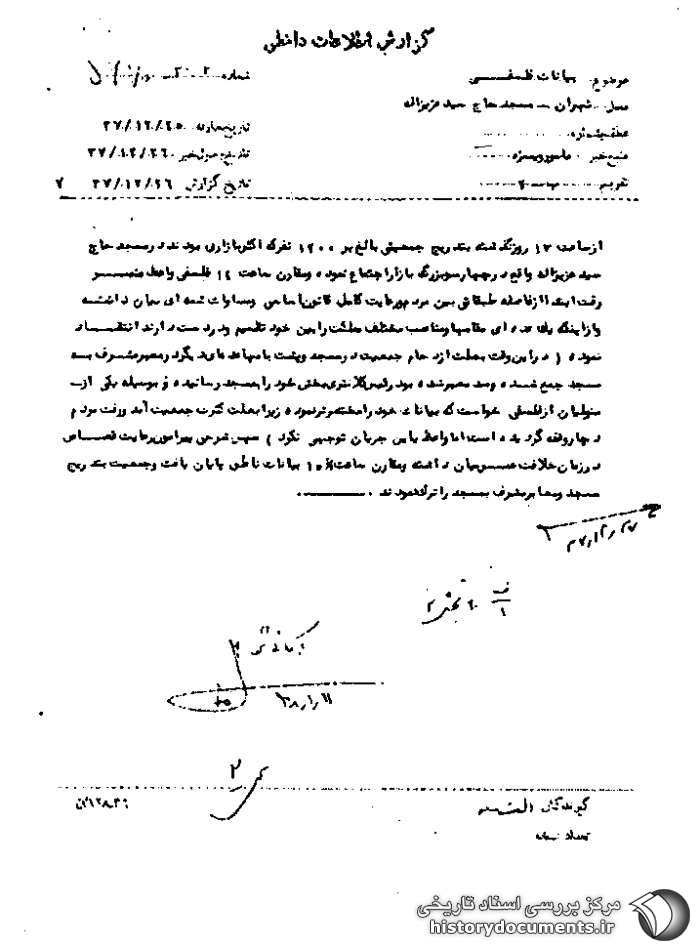 گزارش اطلاعات داخلی
موضوع بیانات فلسفی
شماره
محل تهران - مسجد حاج سید عزیزاله
تاریخ حادثه ۳۷/۱۲/۲۵
عطف بشماره
تاریخ وصول خبر ۳۷/۱۲/۲۶
منبع خبر مامور ویژه
تاریخ گزارش ۳۷/۱۲/۲۶ ۷
تقویم
از ساعت ۱۳ روز گذشته بتدریج جمعیتی بالغ بر ۱۲۰۰ نفر که اکثر بازاری بودند در مسجد حاج
سید عزیزاله واقع در چهارسو بزرگ بازار اجتماع نموده و مقارن ساعت ۱۴ فلسفی واعظ بمنبر
رفت ابتدا از فاصله طبقاتی بین مردم و رعایت کامل قانون اساسی و مساوات شمه ای بیان داشته
و از اینکه یک عده ای مقامها و مناصب مختلف مملکت را بین خود تقسیم و در دست دارند انتقاد
نموده ( در این وقت بعلت ازدحام جمعیت در مسجد و پشت بامها عده ای دیگر در معبر مشرف به
مسجد جمع شده و سد معبر شده بود رئیس کلانتری بخش خود را بمسجد رسانیده و بوسیله یکی از
متولیان از فلسفی خواست که بیانات خود را مختصرتر نموده زیرا بعلت کثرت جمعیت آمد و رفت مردم
دچار وقفه گردیده است اما واعظ باین جریان توجهی نکرد ) سپس شرحی پیرامون رعایت قصاص
در زمان خلافت عمر بیان داشته و مقارن ساعت ۱۵ بیانات ناطق پایان یافت و جمعیت بتدریج
مسجد و معابر مشرف بمسجد را ترک نمودند .
۳۷/۱۲/۲۷
ف
۱
۶۰ بخش ۲
۳۸/۱/۱۱
۲
گیرندگان
تعداد نسخه
مرکز بررسی اسناد تاریخی
historydocuments.ir